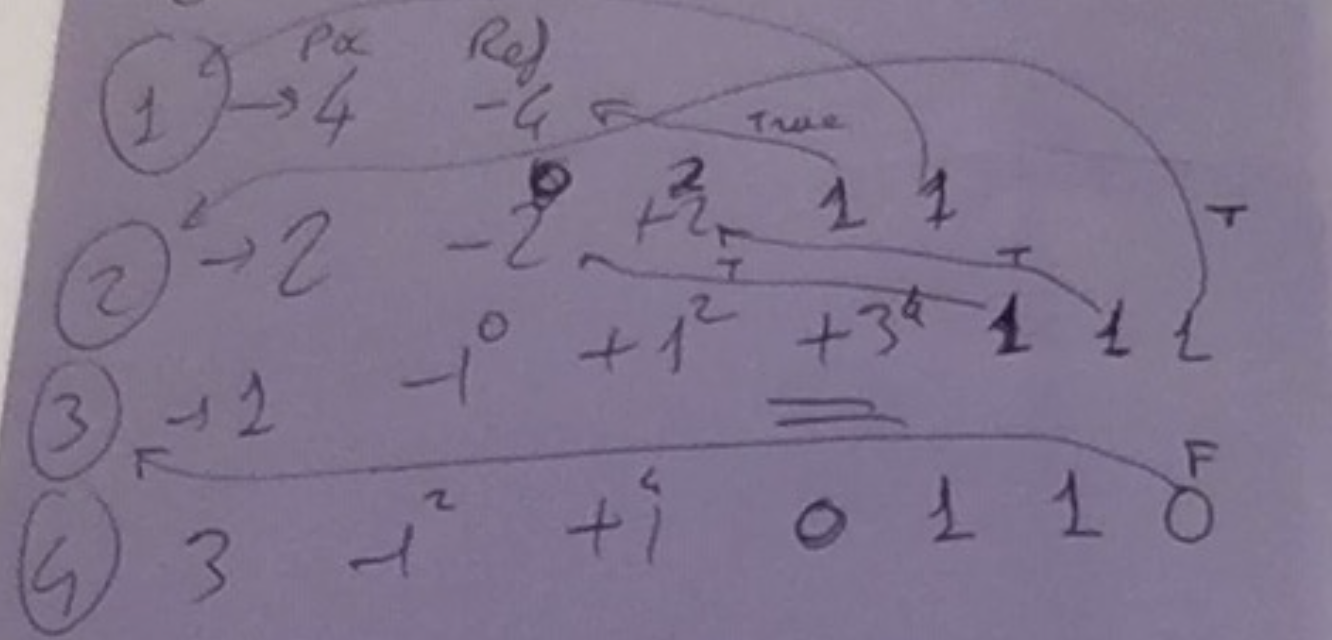 Pα Ref
1 → 4 -4 True
2 → 2 -2 0 +2 2 1 1 T
3 → 1 -1 0 +1 2 +3 4 1 1 1 T T
4 3 -1 2 +1 4 0 1 1 0 F